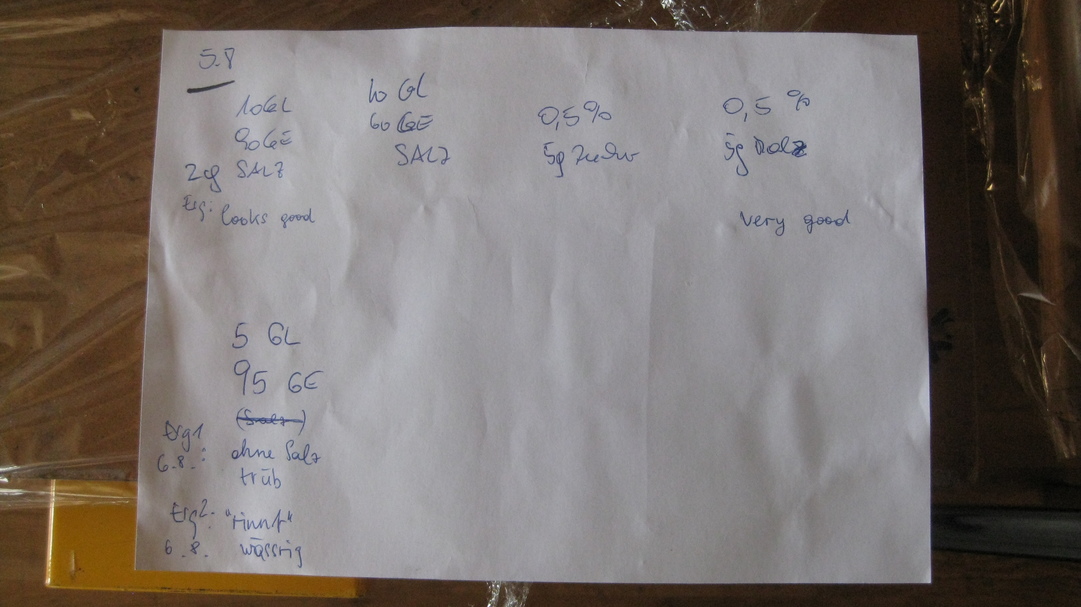 5.8
10GL
90GE
2g SALZ
Erg: looks good
10 GL
60 GE
SALZ
0,5%
5g Zucker
0,5 %
5g
very good
5 GL
95 GE
(Salz)
Erg1
6.8.: ohne Salz
trüb
Erg2: "rinnt"
6.8. wässrig